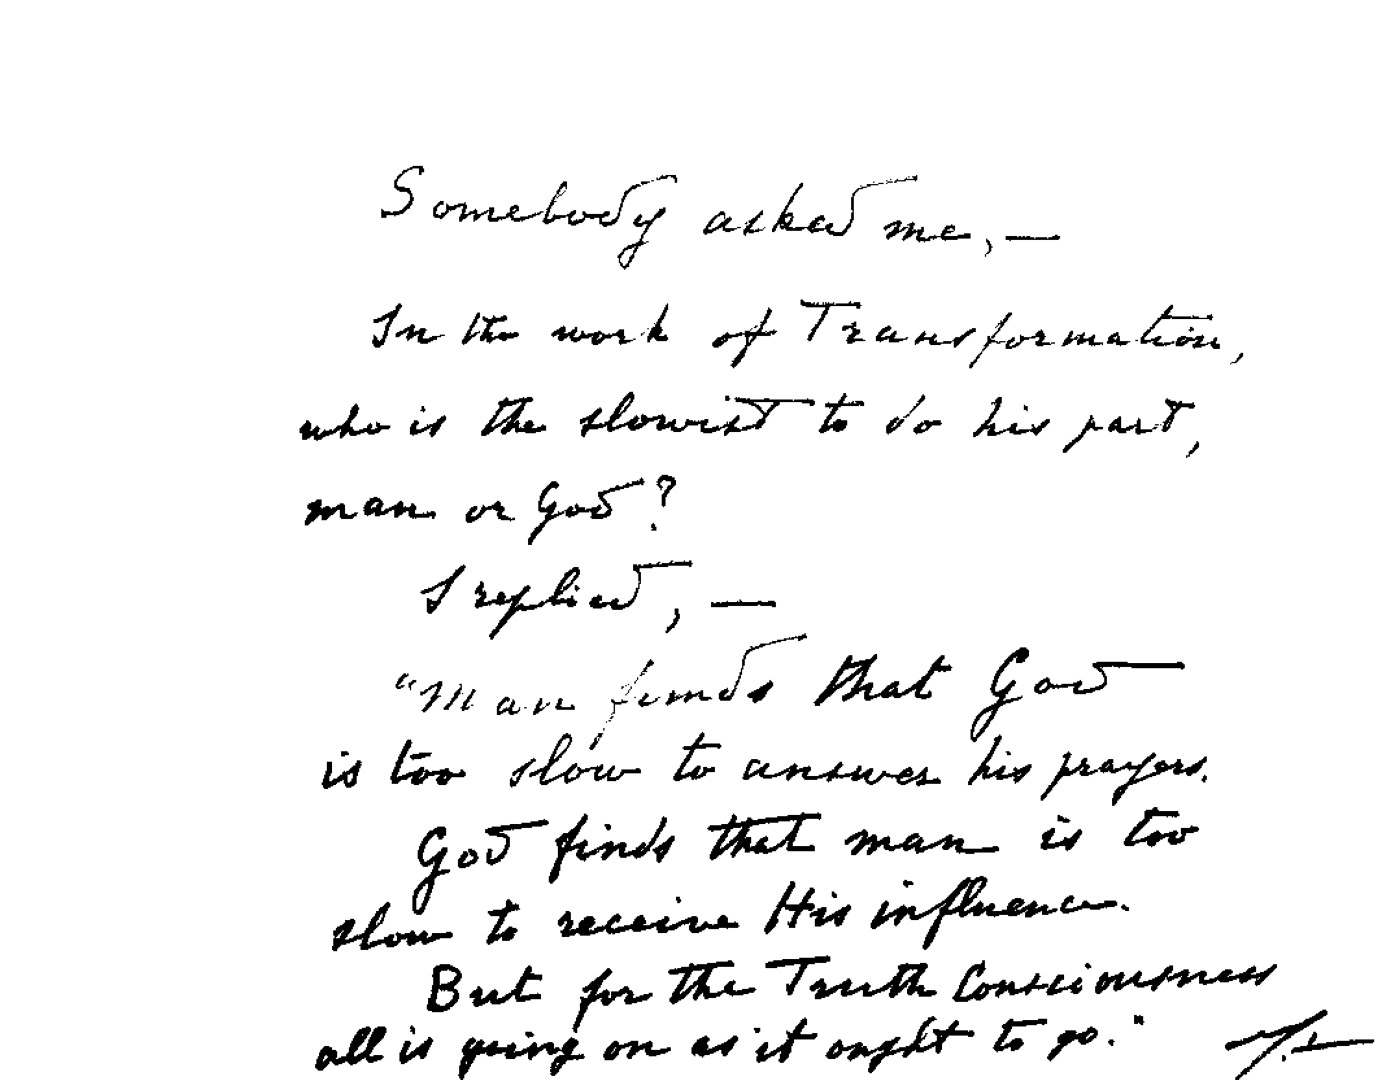 Somebody asked me, —
In the work of Transformation,
who is the slowest to do his part,
man or God?
I replied, —
"Man finds that God
is too slow to answer his prayers.
God finds that man is too
slow to receive His influence.
But for the Truth Consciousness
all is going on as it ought to go."